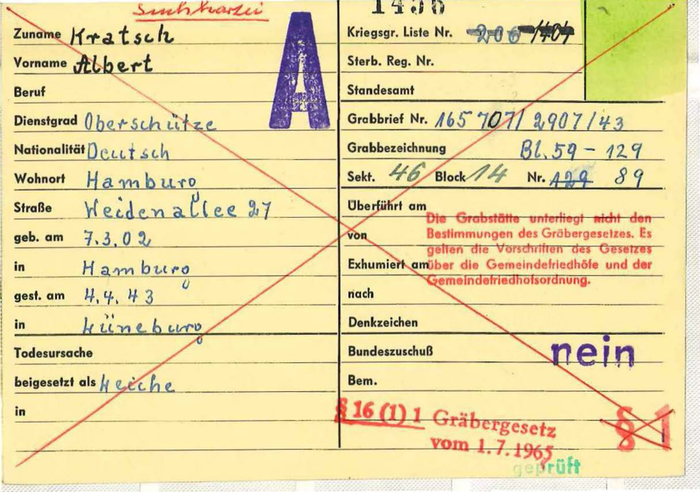 Suchkartei
1436
A
Zuname Kratsch
Vorname Albert
Beruf
Dienstgrad Oberschütze
Nationalität Deutsch
Wohnort Hamburg
Straße Weidenallee 27
geb. am 7.3.02
in Hamburg
gest. am 4.4.43
in Lüneburg
Todesursache
beigesetzt als Leiche
in
Kriegsgr. Liste Nr. 206
Sterb. Reg. Nr.
Standesamt
Grabbrief Nr. 165 707/2907/43
Grabbezeichnung Bl. 59 - 129
Sekt. 46 Block 14 Nr. 129 89
Überführt am
von
Exhumiert am
nach
Denkzeichen
Bundeszuschuß nein
Bem.
Die Grabstätte unterliegt nicht den
Bestimmungen des Gräbergesetzes. Es
gelten die Vorschriften des Gesetzes
über die Gemeindefriedhöfe und der
Gemeindefriedhofsordnung.
§ 16 (1) 1 Gräbergesetz
vom 1.7.1965
§ 1
geprüft